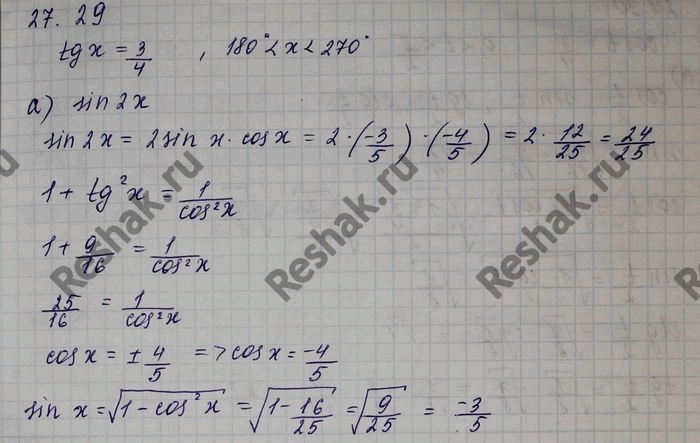 27. 29
tg x = 3/4 , 180° < x < 270°
а) sin 2x
sin 2x = 2 sin x · cos x = 2 · (-3/5) · (-4/5) = 2 · 12/25 = 24/25
1 + tg²x = 1/cos²x
1 + 9/16 = 1/cos²x
25/16 = 1/cos²x
cos x = ± 4/5 => cos x = -4/5
sin x = √(1 - cos²x) = √(1 - 16/25) = √(9/25) = -3/5
Reshak.ru
Reshak.ru
Reshak.ru